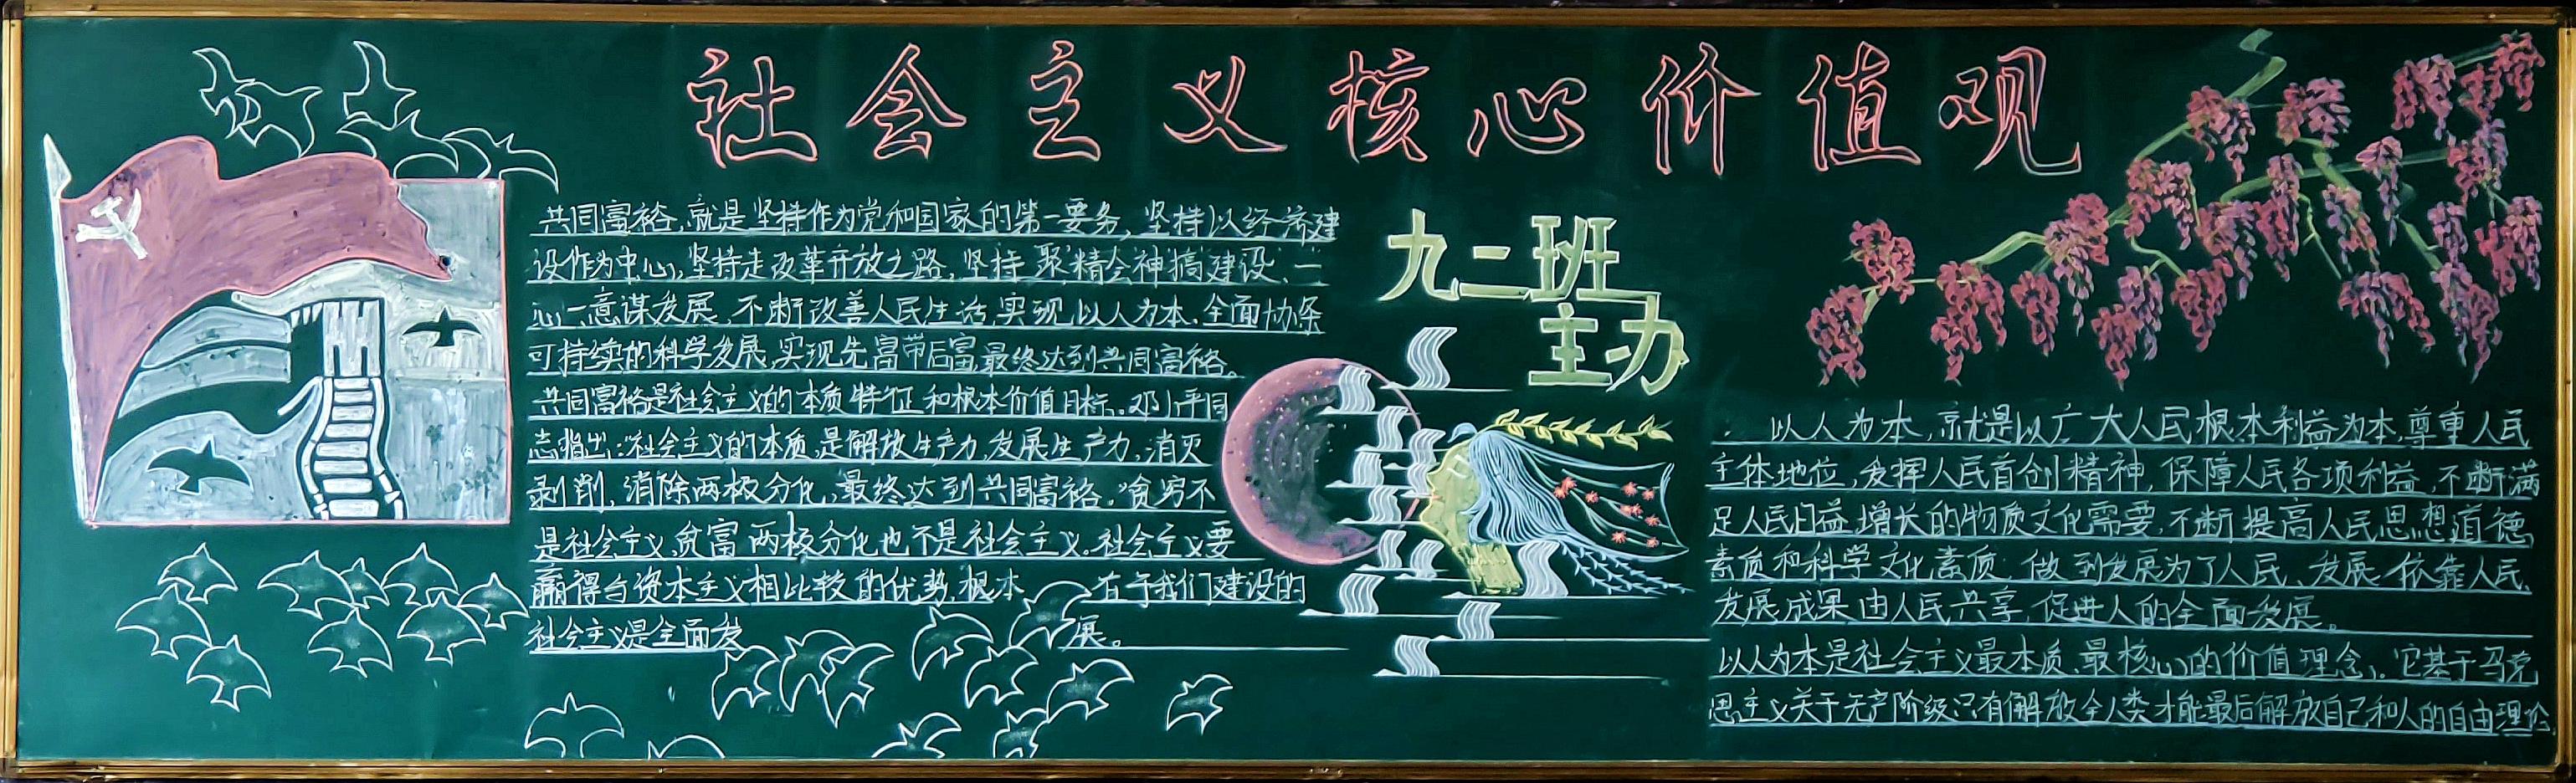 社会主义核心价值观
共同富裕，就是坚持作为党和国家的第一要务，坚持以经济建
设作为中心，坚持走改革开放之路，坚持聚精会神搞建设、一
心一意谋发展，不断改善人民生活，实现以人为本、全面协条
可持续的科学发展，实现先富带后富，最终达到共同富裕。
共同富裕是社会主义的本质特征和根本价值目标。邓小平同
志指出：“社会主义的本质，是解放生产力，发展生产力，消灭
剥削，消除两极分化，最终达到共同富裕。”贫穷不
是社会主义，贫富两极分化也不是社会主义。社会主义要
赢得与资本主义相比较的优势，根本 在于我们建设的
社会主义是全面发 展。
九二班
主办
以人为本，就是以广大人民根本利益为本，尊重人民
主体地位，发挥人民首创精神，保障人民各项利益，不断满
足人民日益增长的物质文化需要，不断提高人民思想道德
素质和科学文化素质；做到发展为了人民、发展依靠人民、
发展成果由人民共享，促进人的全面发展。
以人为本是社会主义最本质、最核心的价值理念。它基于马克
思主义关于无产阶级只有解放全人类才能最后解放自己和人的自由理论